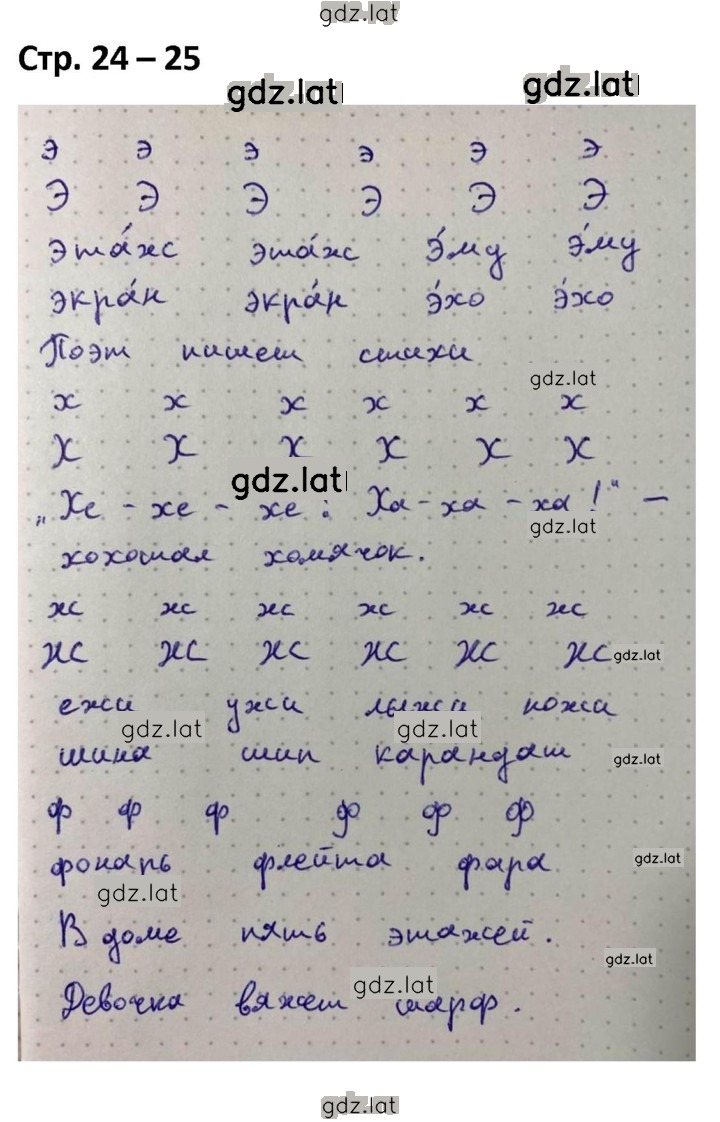 gdz.lat
Стр. 24 – 25
gdz.lat gdz.lat
э э э э э э
Э Э Э Э Э Э
эта́ж эта́ж э́му э́му
экра́н экра́н э́хо э́хо
Поэт пишет стихи
gdz.lat
х х х х х х
Х Х Х Х Х Х
gdz.lat
„Хе - хе - хе : Ха - ха - ха !“ —
gdz.lat
хохотал хомячок.
ж ж ж ж ж ж
Ж Ж Ж Ж Ж Ж gdz.lat
ежи ужи лыжи ножи
gdz.lat gdz.lat
шина шип карандаш gdz.lat
ф ф ф ф ф ф
фонарь флейта фара gdz.lat
gdz.lat
В доме пять этажей.
gdz.lat
gdz.lat
Девочка вяжет шарф.
gdz.lat